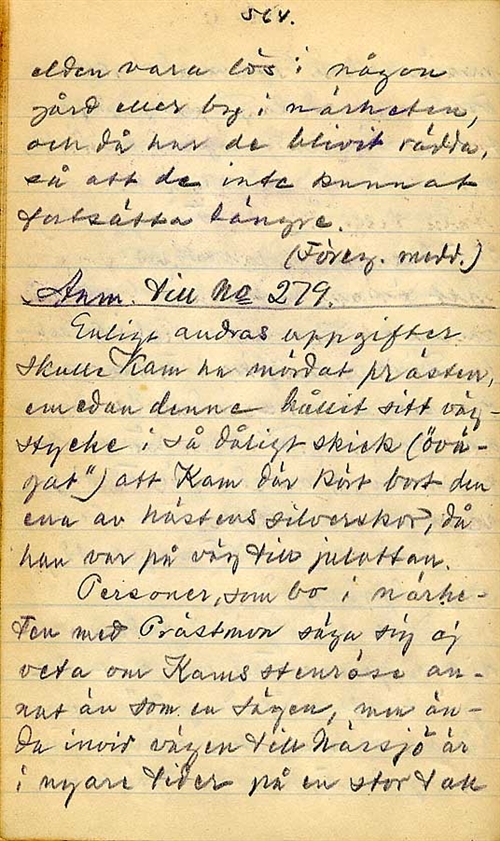 564.
elden vara lös i någon
gård eller by i närheten,
och då har de blivit rädda,
så att de inte kunnat
fortsätta längre.
(Föreg. medd.)
Anm. till No 279.
Enligt andras uppgifter
skulle Kam ha mördat prästen,
emedan denne hållit sitt väg-
stycke i så dåligt skick ("ovä-
gat") att Kam där kört bort den
ena av hästens silverskor, då
han var på väg till julottan.
Personer, som bo i närhe-
ten med Prästmon säga sig ej
veta om Kams stenröse an-
nat än som en sägen, men än-
da invid vägen till Närsjö är
i nyare tider på en stor tall